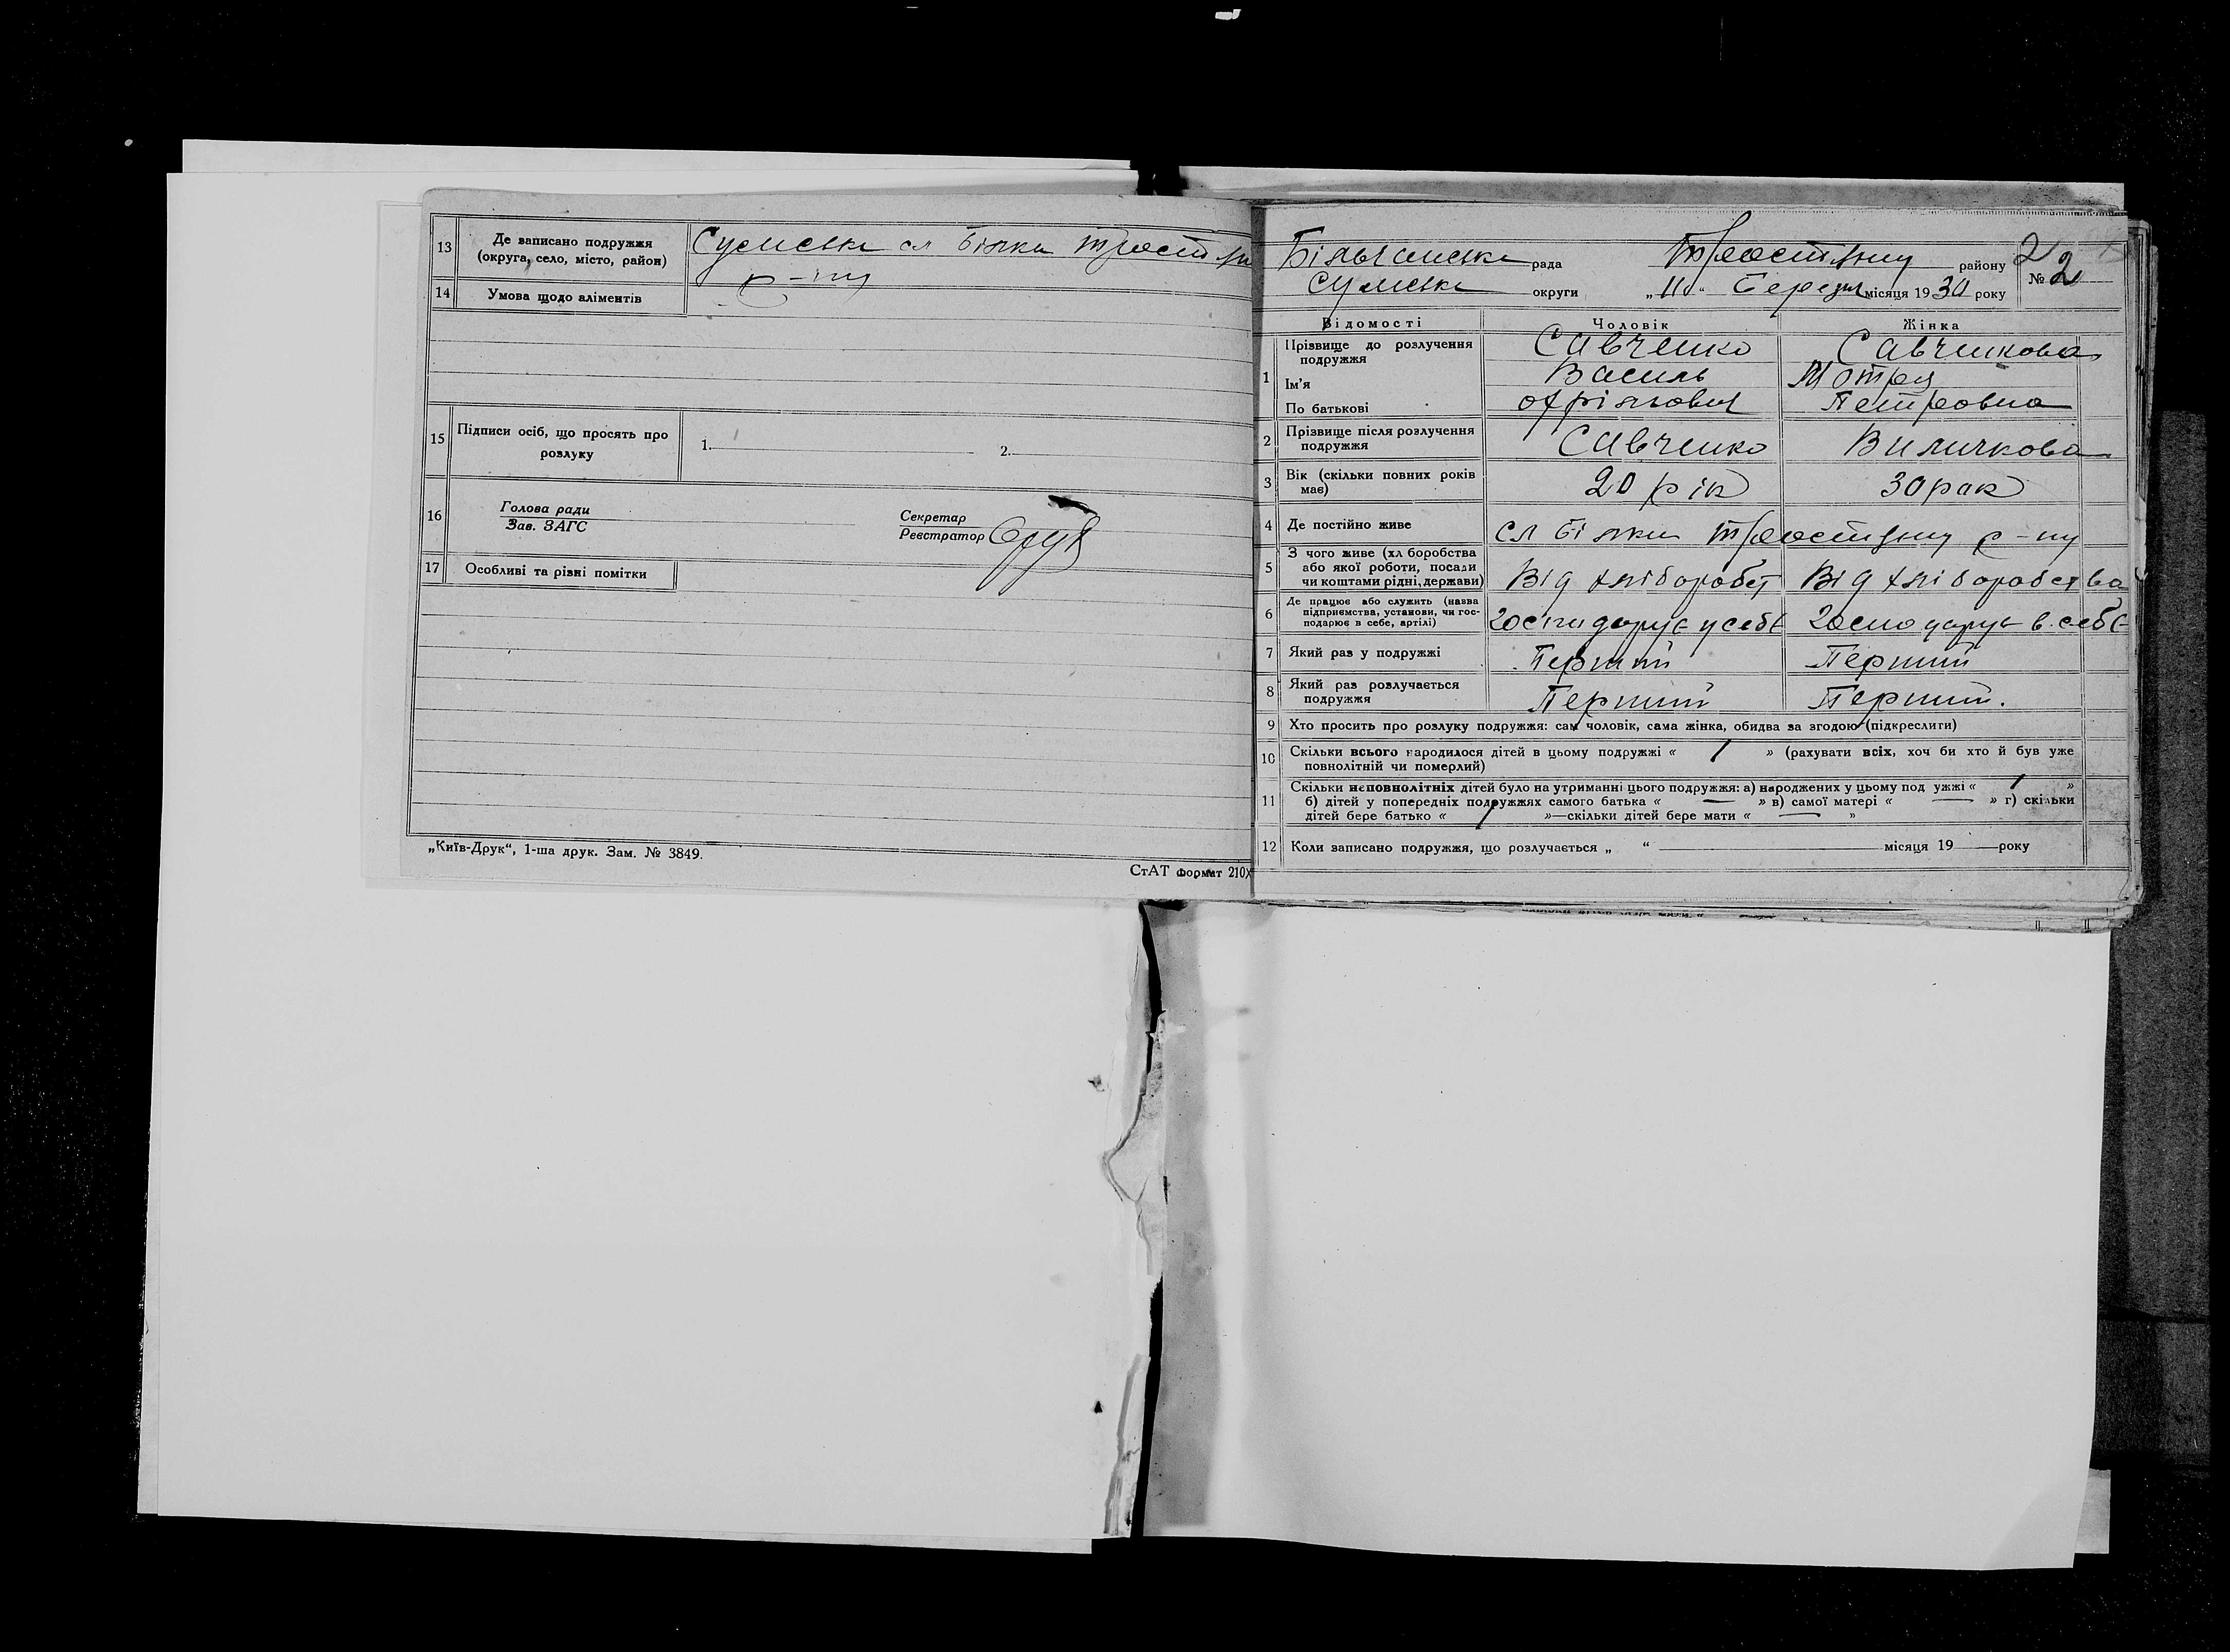 13 Де записано подружжя Сумська сл Білка Трост
(округа, село, місто, район) р-ну
14 Умова щодо аліментів
15 Підписи осіб, що просять про розлуку 1. 2.
16 Голова ради Секретар
Зав. ЗАГС Реєстратор
17 Особливі та різні помітки
„Київ-Друк“, 1-ша друк. Зам. № 3849.
СтАТ формат 210X
2
рада району № 2
Сумська округи „11“ Березня місяця 1930 року
Відомості Чоловік Жінка
1 Прізвище до розлучення подружжя Савченко Савченкова
Ім'я Василь Мотря
По батькові Петровна
2 Прізвище після розлучення подружжя Савченко
3 Вік (скільки повних років має) 20 рік 30 рак
4 Де постійно живе сл Білки р-ну
5 З чого живе (хліборобства або якої роботи, посади чи коштами рідні, держави) Від хліборобст Від хліборобства
6 Де працює або служить (назва підприємства, установи, чи господарює в себе, артілі) господарує у себе господарує в себе
7 Який раз у подружжі Перший Перший
8 Який раз розлучається подружжя Перший Перший.
9 Хто просить про розлуку подружжя: сам чоловік, сама жінка, обидва за згодою (підкреслити)
10 Скільки всього народилося дітей в цьому подружжі « 1 » (рахувати всіх, хоч би хто й був уже
повнолітній чи померлий)
11 Скільки неповнолітніх дітей було на утриманні цього подружжя: а) народжених у цьому под ужжі « 1 »
б) дітей у попередніх подружжях самого батька « — » в) самої матері « — » г) скільки
дітей бере батько « 1 »—скільки дітей бере мати « — »
12 Коли записано подружжя, що розлучається „ “ місяця 19 року